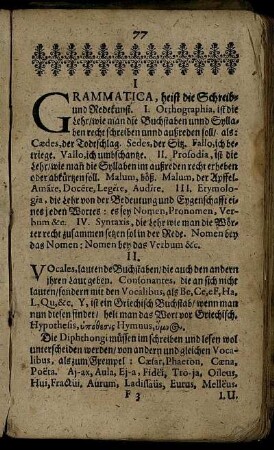 77
I
GRAMMATICA, heist die Schreib-
und Redekunst. I. Orthographia, ist die
Lehr/wie man die Buchstaben unnd Sylla-
ben recht schreiben unnd außreden soll/ als:
Cædes, der Todtschlag. Sedes, der Sitz. Fallo, ich be-
triege. Vallo, ich umbschantze. II. Prosodia, ist die
Lehr/wie man̄ die Syllaben im außreden recht erheben
oder abkürtzen soll. Malum, böß. Malum, der Apffel.
Amáre, Docére, Legére, Audire. III. Etymolo-
gia, die Lehr von der Bedeutung und Eygenschafft ei-
nes jeden Wortes: es sey Nomen, Pronomen, Ver-
bum &c. IV. Syntaxis, die Lehr wie man die Wör-
ter recht zusammen setzen sol in der Rede. Nomen bey
das Nomen: Nomen bey das Verbum &c.
II.
Vocales, lautende Buchstaben/die auch den andern
ihren Laut geben. Consonantes, die an sich nicht
lauten/sondern mit den Vocalibus, als Be, Ce, eF, Ha,
L, Qu, &c, Y, ist ein Griechisch Buchstab/ wenn man
nun diesen findet/ helt man das Wort vor Griechisch.
Hypothesis, ὑπόθεσις Hymnus, ὕμνος.
Die Diphthongi müssen im schreiben und lesen wol
unterscheiden werden/ von andern und gleichen Voca-
libus, als zum Exempel: Cæsar, Phaëton, Cœna,
Poëta. Aj-ax, Aula, Ej-a, Fidêi, Tro-ja, Oileus,
Hui, Fructûi, Aurum, Ladislaüs, Eurus, Mellëus.
F 3 LU.